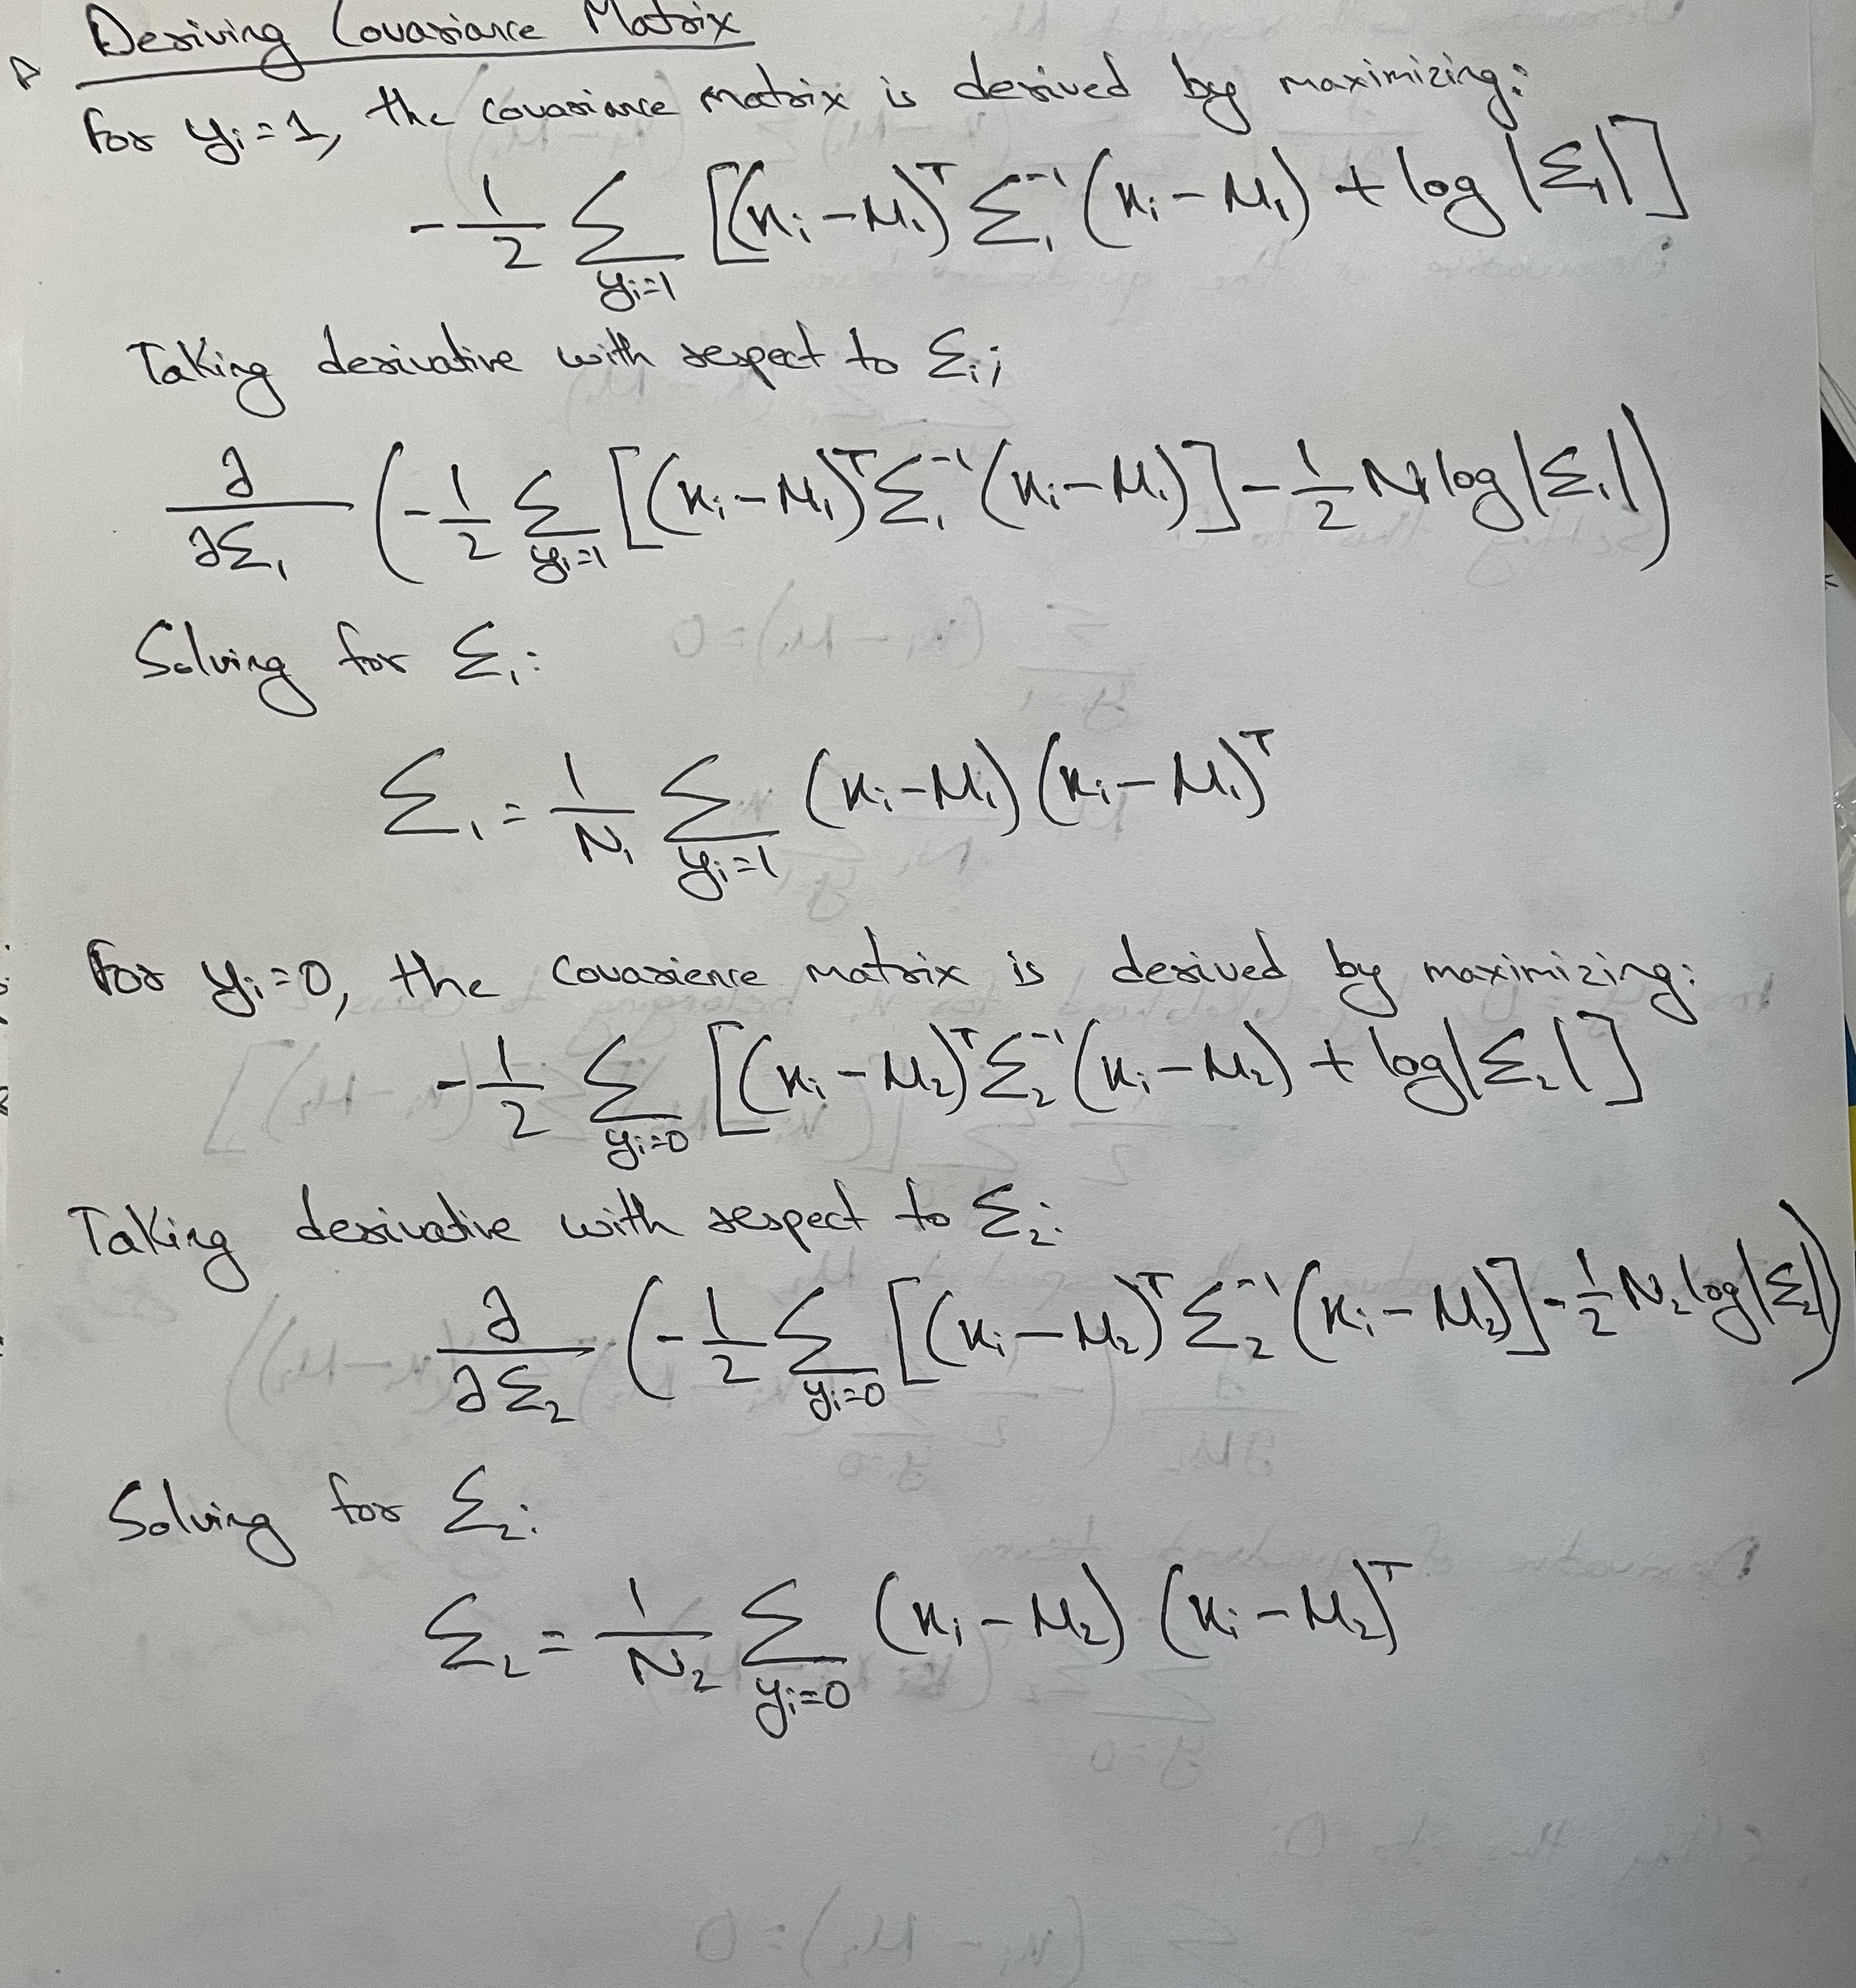 Deriving Covariance Matrix
For yᵢ=1, the covariance matrix is derived by maximizing:
-1/2 Σ_{yᵢ=1} [(xᵢ-μ₁)ᵀ Σ₁⁻¹ (xᵢ-μ₁) + log|Σ₁|]
Taking derivative with respect to Σ₁;
∂/∂Σ₁ (-1/2 Σ_{yᵢ=1} [(xᵢ-μ₁)ᵀ Σ₁⁻¹ (xᵢ-μ₁)] - 1/2 N₁ log|Σ₁|)
Solving for Σ₁:
Σ₁ = 1/N₁ Σ_{yᵢ=1} (xᵢ-μ₁) (xᵢ-μ₁)ᵀ
For yᵢ=0, the covarience matrix is derived by maximizing:
-1/2 Σ_{yᵢ=0} [(xᵢ-μ₂)ᵀ Σ₂⁻¹ (xᵢ-μ₂) + log|Σ₂|]
Taking derivative with respect to Σ₂:
∂/∂Σ₂ (-1/2 Σ_{yᵢ=0} [(xᵢ-μ₂)ᵀ Σ₂⁻¹ (xᵢ-μ₂)] - 1/2 N₂ log|Σ₂|)
Solving for Σ₂:
Σ₂ = 1/N₂ Σ_{yᵢ=0} (xᵢ-μ₂) (xᵢ-μ₂)ᵀ